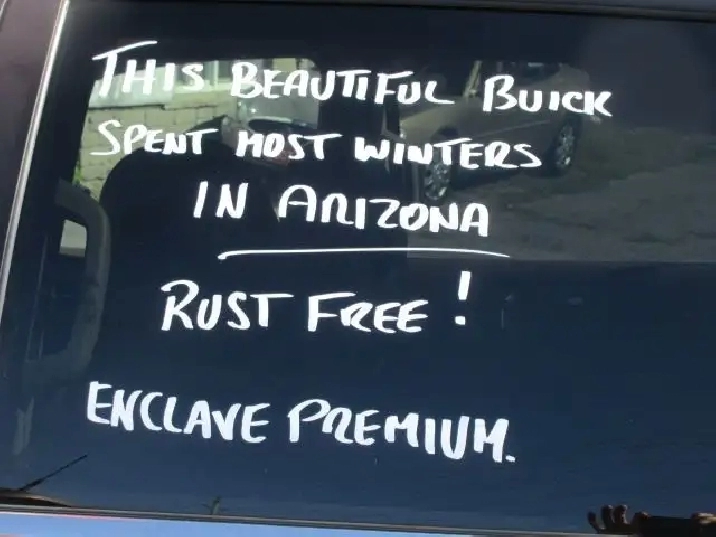 THIS BEAUTIFUL BUICK
SPENT MOST WINTERS
IN ARIZONA
RUST FREE!
ENCLAVE PREMIUM.